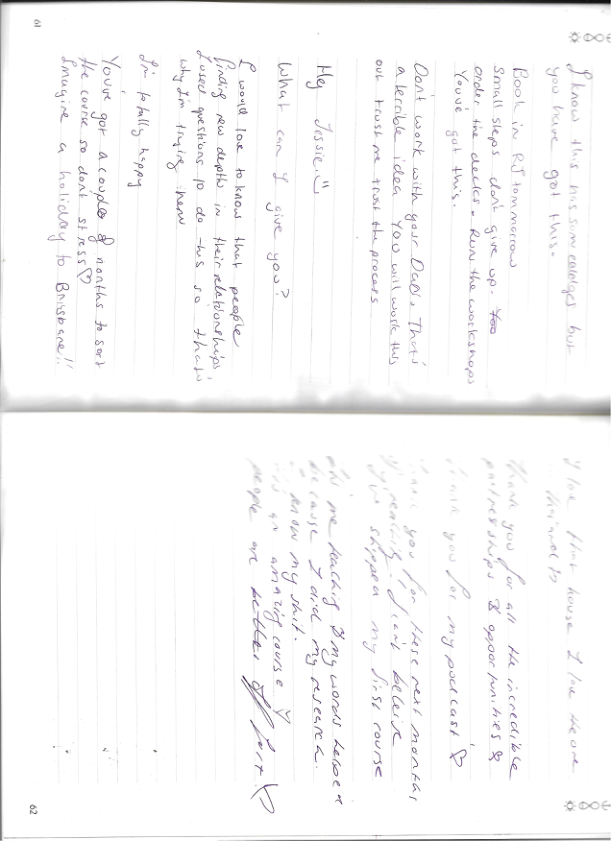 61
I know this has some challenges but
you have got this.
Book in RJ tommorrow
Small steps don't give up. Too
order the decks. Run the workshops
You've got this.
Don't work with your Dad. That's
a terrible idea you will work this
out trust me trust the process
Hey Jessie
What can I give you?
I would love to know that people
finding new depth in their relationships
I used questions to do this so that's
why I'm trying here
I'm totally happy
You've got a couple of months to sort
the course so don't stress ♡
Imagine a holiday to Brisbane!!
62
I love that house I love the one
thank you for all the incredible
partnerships & opportunities
thank you for my podcast ♡
you for these next months
I can't believe
shipped my first course
me teaching & my words helped
because I did my research.
know my shit.
an amazing course
people are better off for it ♡